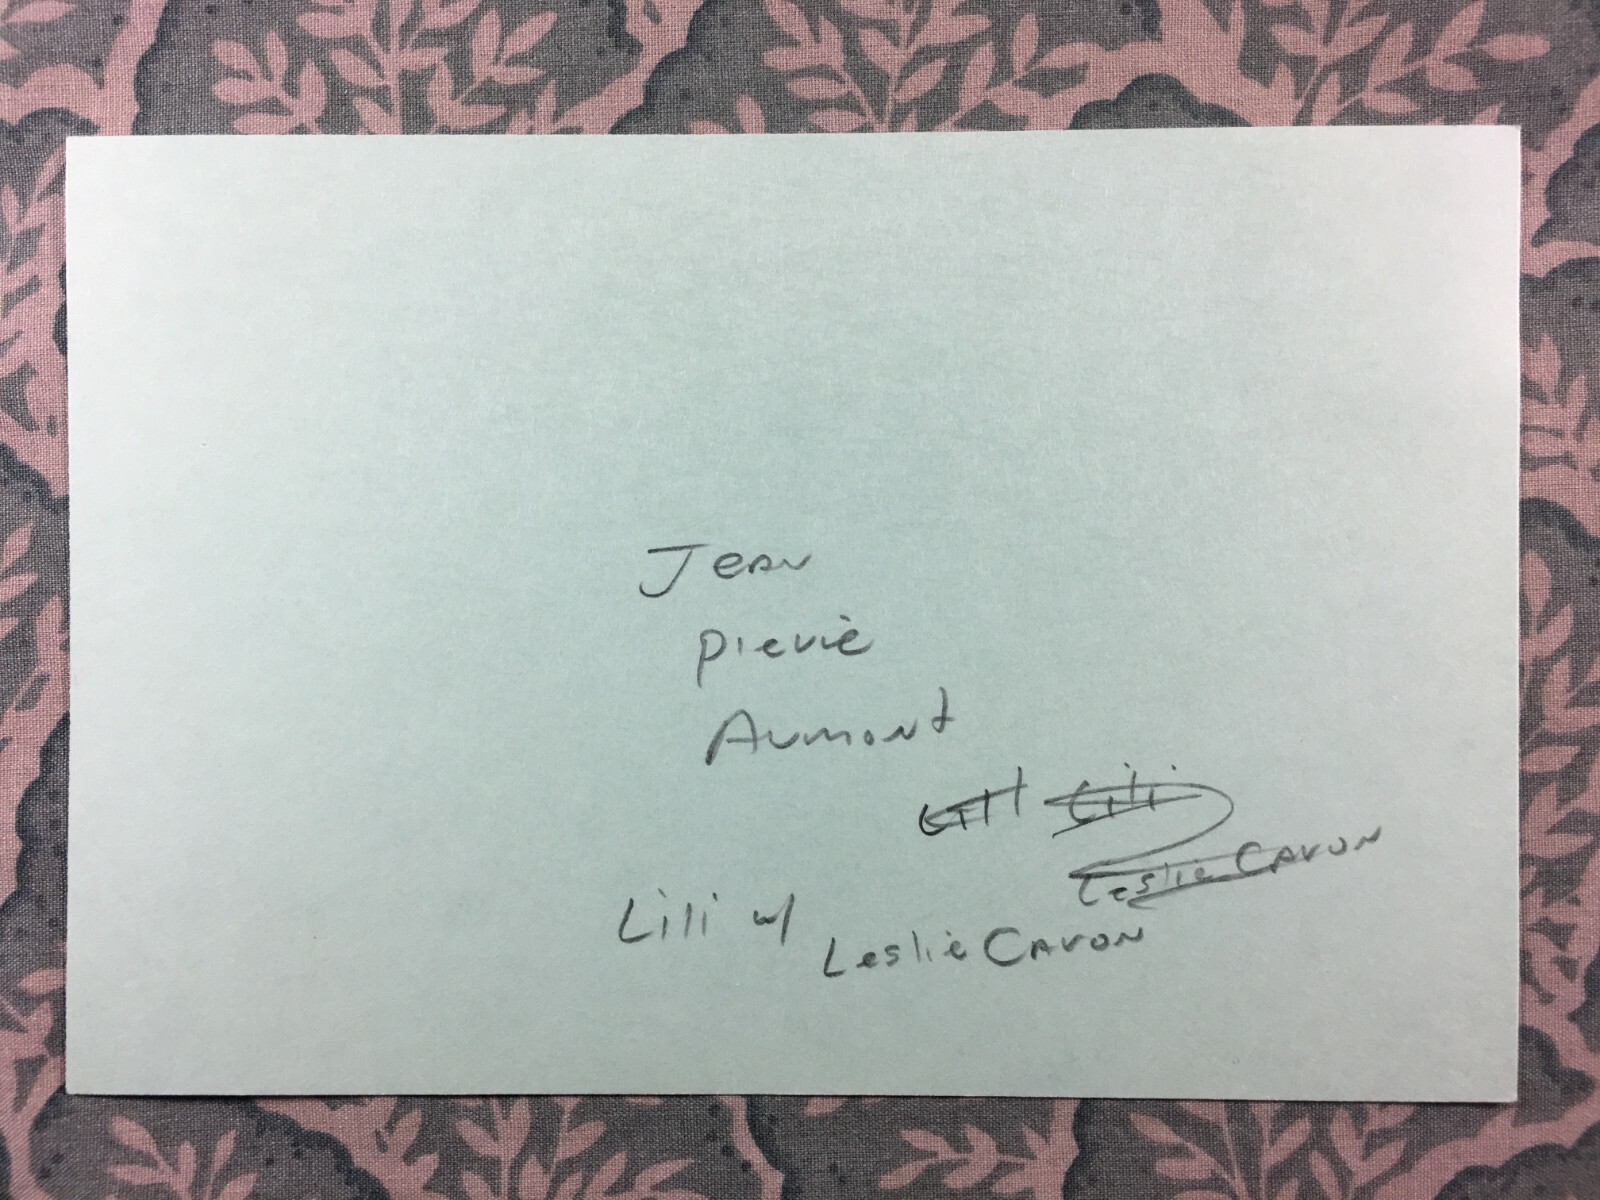 Jean
Pierre
Aumont
Lili
Leslie Caron
Lili w/
Leslie Caron